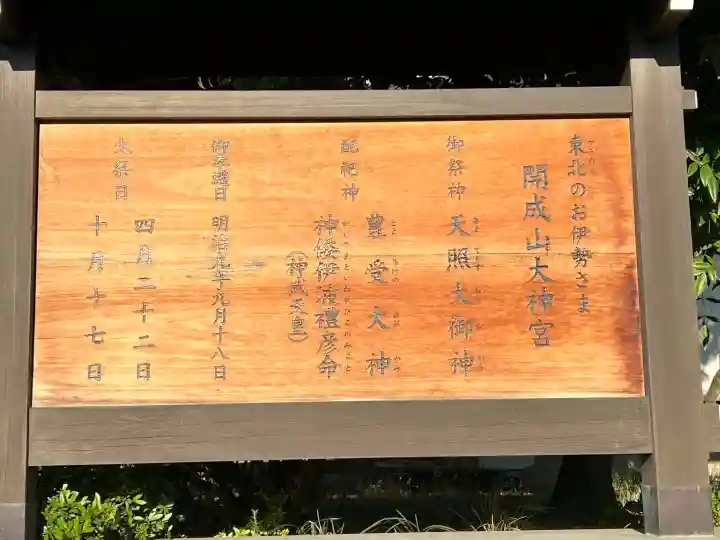 東北のお伊勢さま
開成山大神宮
御祭神 天照大御神
配祀神 豊受大神
神倭伊波禮彦命
(神武天皇)
御遷日 明治九年九月十八日
大祭日 四月二十二日
十月十七日